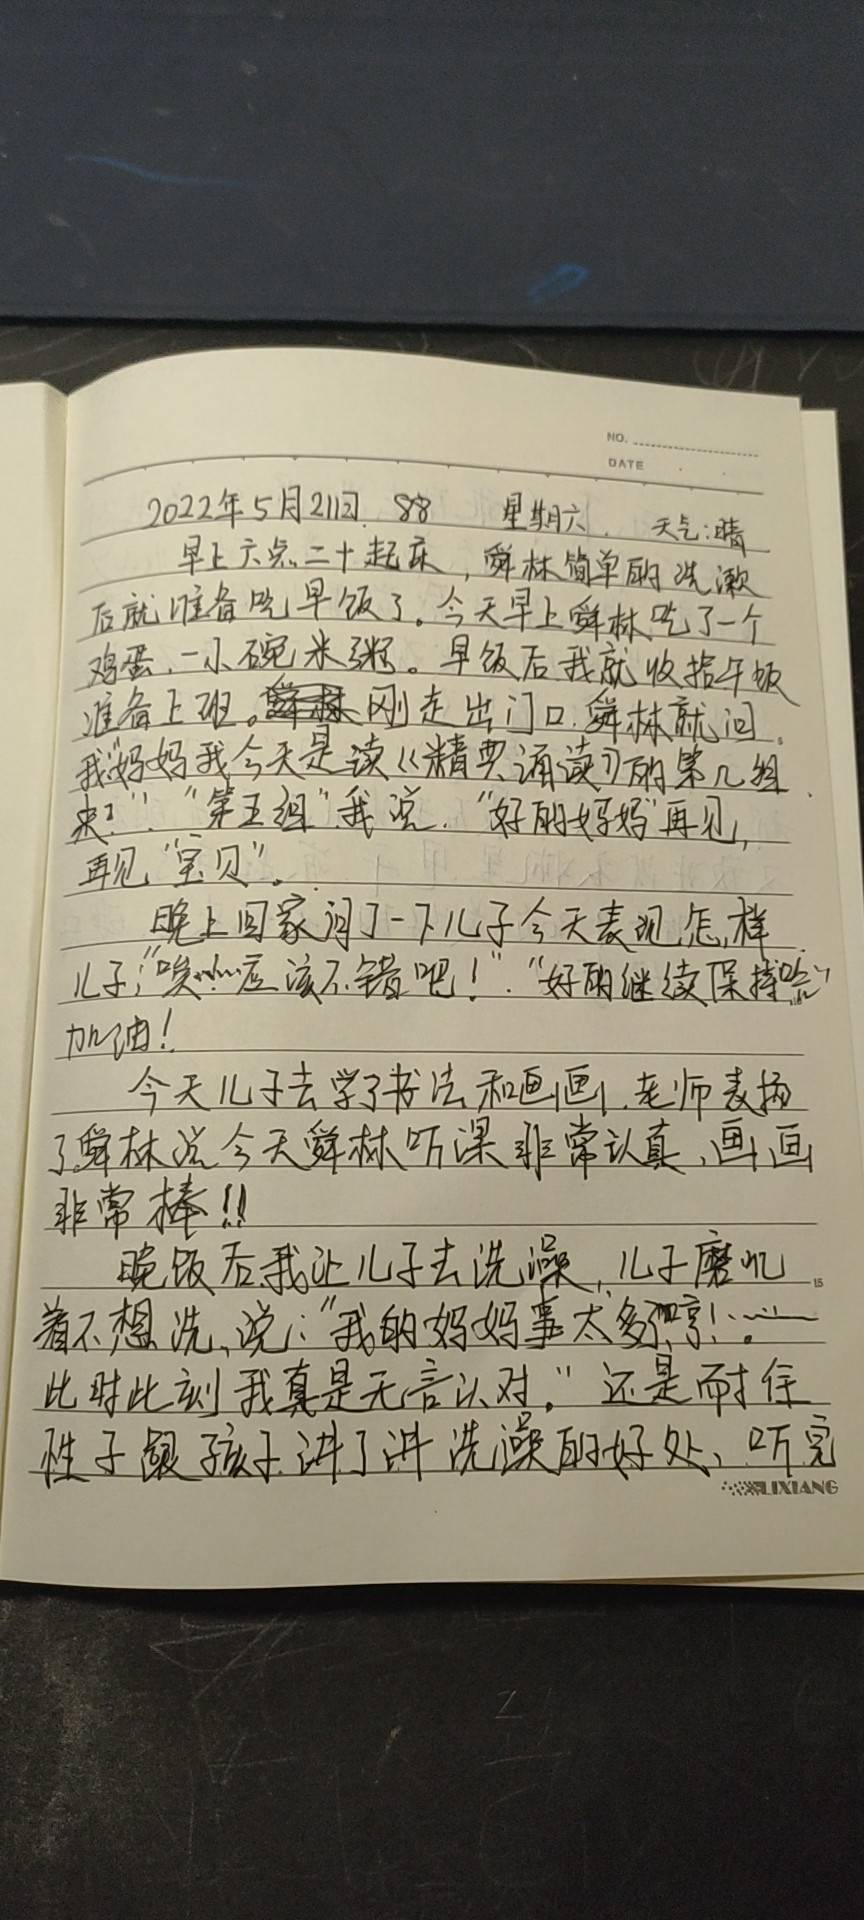 NO.
DATE
2022年5月21日. 88 星期六. 天气:晴
早上六点二十起床,舜林简单的洗漱
后就准备吃早饭了。今天早上舜林吃了一个
鸡蛋、一小碗米粥。早饭后我就收拾午饭
准备上班。刚走出门口.舜林就问
我"妈妈我今天是读《精典诵读》的第几组
来?"."第五组"我说."好的妈妈"再见,
再见"宝贝"。
晚上回家问了一下儿子今天表现怎样
儿子:"唉……应该不错吧!"."好的继续保持哈"
加油!
今天儿子去学了书法和画画.老师表扬
了舜林说今天舜林听课非常认真、画画
非常棒!!
晚饭后我让儿子去洗澡,儿子磨叽
着不想洗、说:"我的妈妈事太多啦!……
此时此刻我真是无言以对。"还是耐住
性子跟孩子讲了讲洗澡的好处、听完
15
LIXIANG